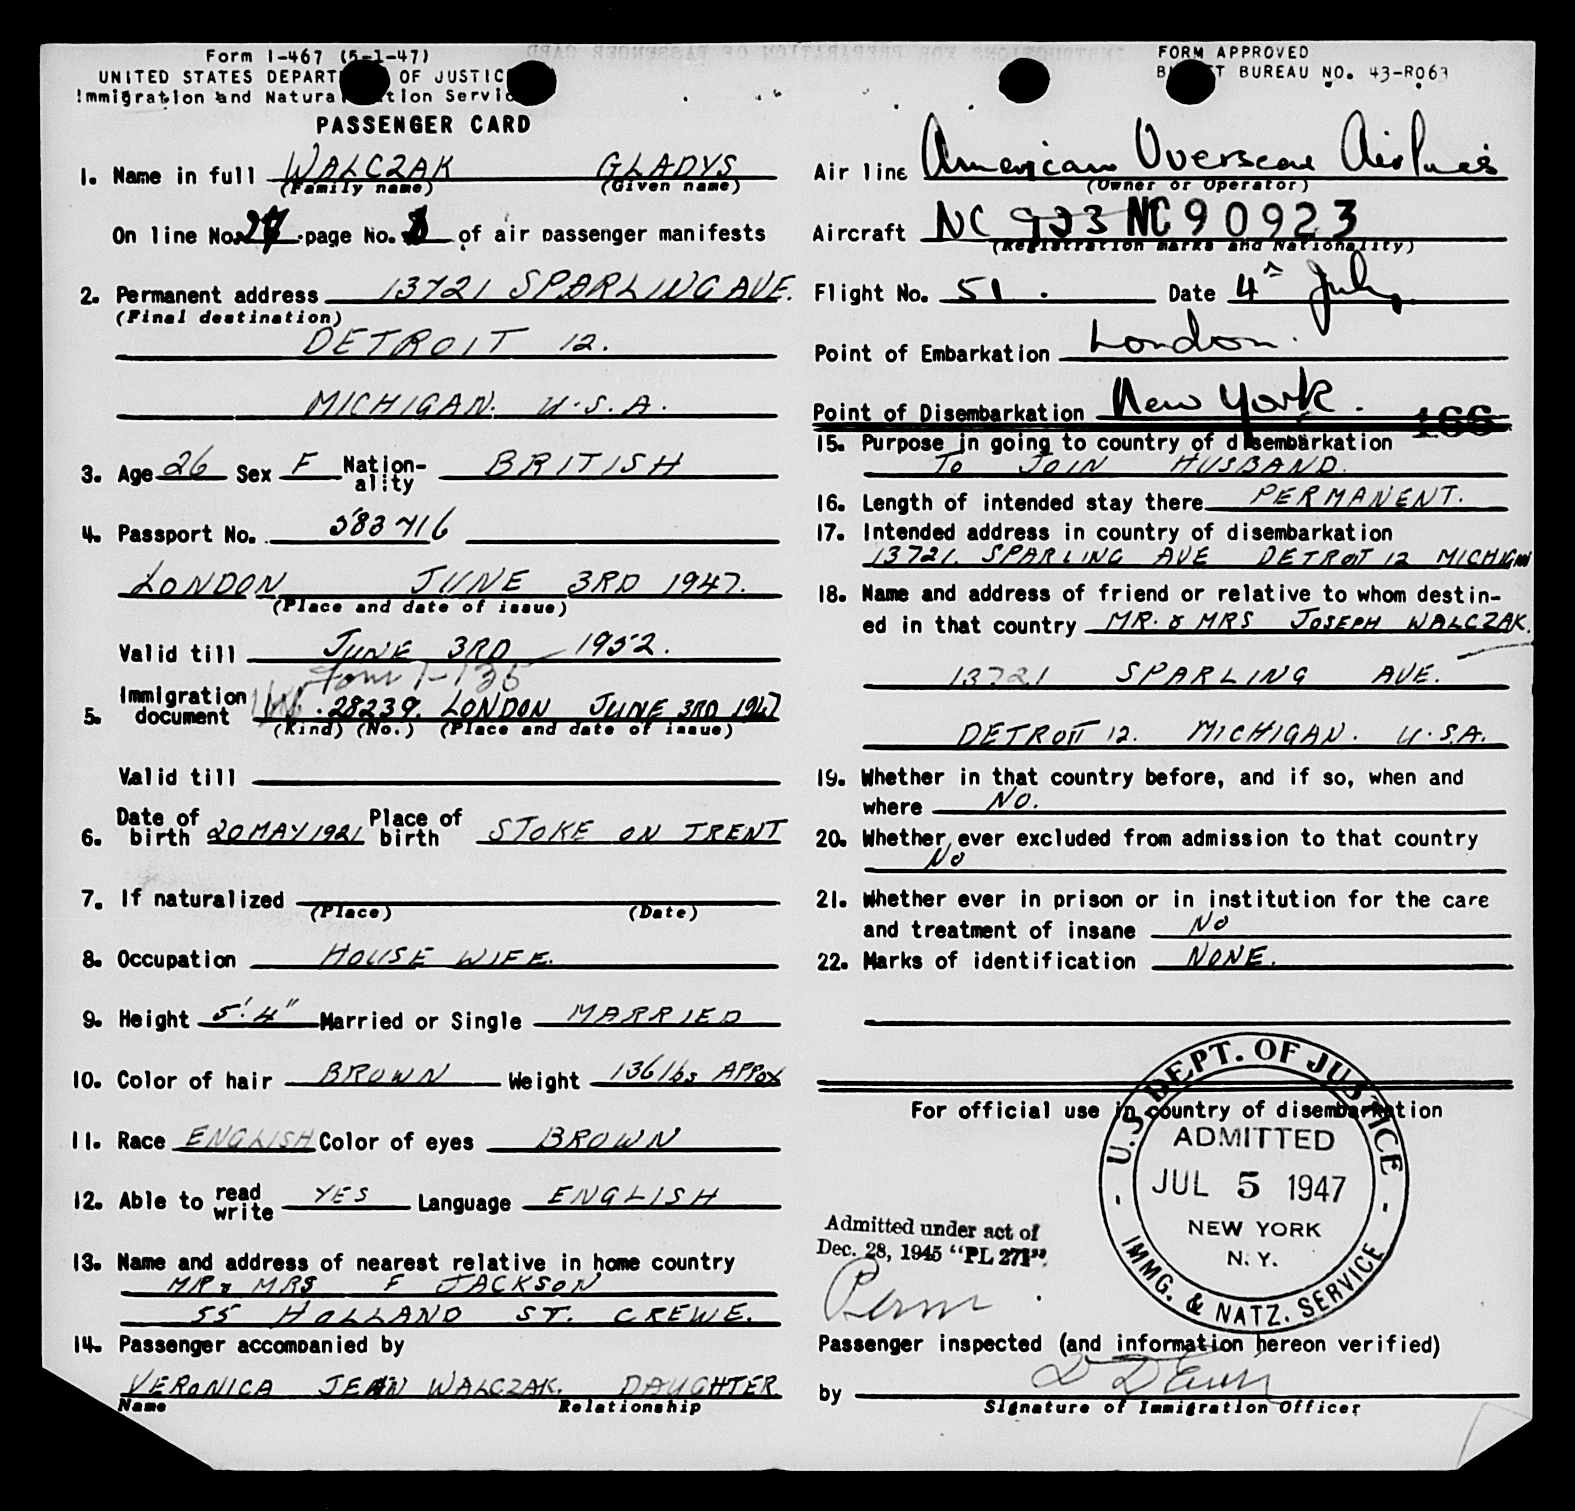 Form I-467 (5-1-47)
UNITED STATES DEPART OF JUSTIC
Immigration and Natura ation Servic
PASSENGER CARD
1. Name in full WALCZAK GLADYS
(Family name) (Given name)
On line No. page No. of air passenger manifests
2. Permanent address 13721 SPARLING AVE.
(Final destination)
DETROIT 12.
MICHIGAN. U.S.A.
3. Age 26 Sex F Nation-ality BRITISH
4. Passport No. 583716
LONDON JUNE 3RD 1947.
(Place and date of issue)
Valid till JUNE 3RD 1952.
Form I-135
5. Immigration document 28239. LONDON JUNE 3RD 1947
(Kind) (No.) (Place and date of issue)
Valid till
6. Date of birth 20 MAY 1921 Place of birth STOKE ON TRENT
7. If naturalized
(Place) (Date)
8. Occupation HOUSE WIFE.
9. Height 5'.4" Married or Single MARRIED
10. Color of hair BROWN Weight 136 lbs APPOX
11. Race ENGLISH Color of eyes BROWN
12. Able to read write YES Language ENGLISH
13. Name and address of nearest relative in home country
MR & MRS F JACKSON
55 HOLLAND ST. CREWE.
14. Passenger accompanied by
VERONICA JEAN WALCZAK. DAUGHTER
Name Relationship
FORM APPROVED
B T BUREAU NO. 43-R063
Air line American Overseas Airlines
(Owner or Operator)
Aircraft NC 923 NC90923
(Registration marks and Nationality)
Flight No. 51. Date 4th July
Point of Embarkation London.
Point of Disembarkation New York.
166
15. Purpose in going to country of disembarkation
TO JOIN HUSBAND.
16. Length of intended stay there PERMANENT.
17. Intended address in country of disembarkation
13721. SPARLING AVE DETROIT 12 MICHIGAN
18. Name and address of friend or relative to whom destin-
ed in that country MR. & MRS JOSEPH WALCZAK.
13721 SPARLING AVE.
DETROIT 12. MICHIGAN. U.S.A.
19. Whether in that country before, and if so, when and
where NO.
20. Whether ever excluded from admission to that country
NO
21. Whether ever in prison or in institution for the care
and treatment of insane NO
22. Marks of identification NONE.
For official use in country of disembarkation
U.S. DEPT. OF JUSTICE
ADMITTED
JUL 5 1947
NEW YORK
N.Y.
IMMG. & NATZ. SERVICE
Admitted under act of
Dec. 28, 1945 "PL 271".
Perm
Passenger inspected (and information hereon verified)
by
Signature of Immigration Officer